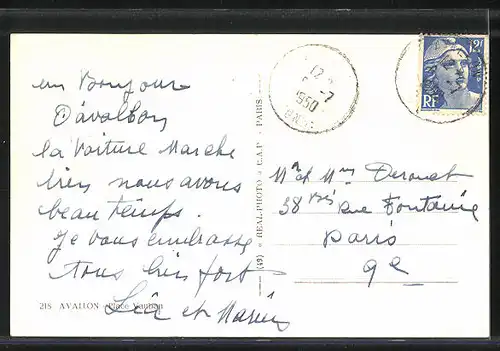 un Bonjour
D'avallon
la Voiture Marche
bien nous avons
beau temps.
Je vous embrasse
tous bien fort
et
218 AVALLON - Place Vauban
(49) « REAL-PHOTO » C.A.P. - PARIS
12
-7
1950
12F
RF
Mr et Mme Derouet
38 bis Rue Fontaine
Paris
9e